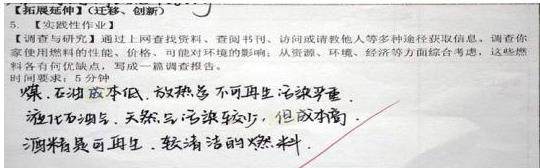 【拓展延伸】(迁移、创新)
5. 【实践性作业】
【调查与研究】通过上网查找资料、查阅书刊、访问或请教他人等多种途径获取信息。调查你
家使用燃料的性能、价格、可能对环境的影响；从资源、环境、经济等方面综合考虑，这些燃
料各有何优缺点，写成一篇调查报告。
时间要求：5 分钟
煤、石油成本低、放热多 不可再生 污染严重.
液化石油气、天然气 污染较少，但成本高.
酒精是可再生、较清洁的燃料.